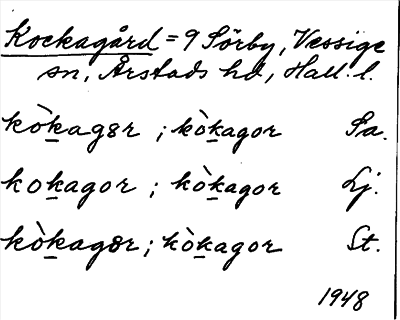 Kockagård = 9 Sörby, Vessige
sn, Årstads hd, Hall. l.
kòkagɜr ; kòkagor Sa.
kokagor ; kòkagor Lj.
kòkagɜr ; kòkagor St.
1948